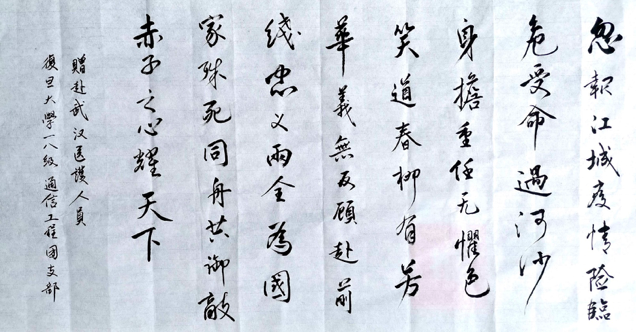 忽報江城疫情险臨
危受命過河沙
身擔重任无懼色
笑道春柳有芳
華義無反顧赴前
线忠义兩全為國
家殊死同舟共御敵
赤子之心耀天下
贈赴武汉医護人員
復旦大學一八級通信工程團支部